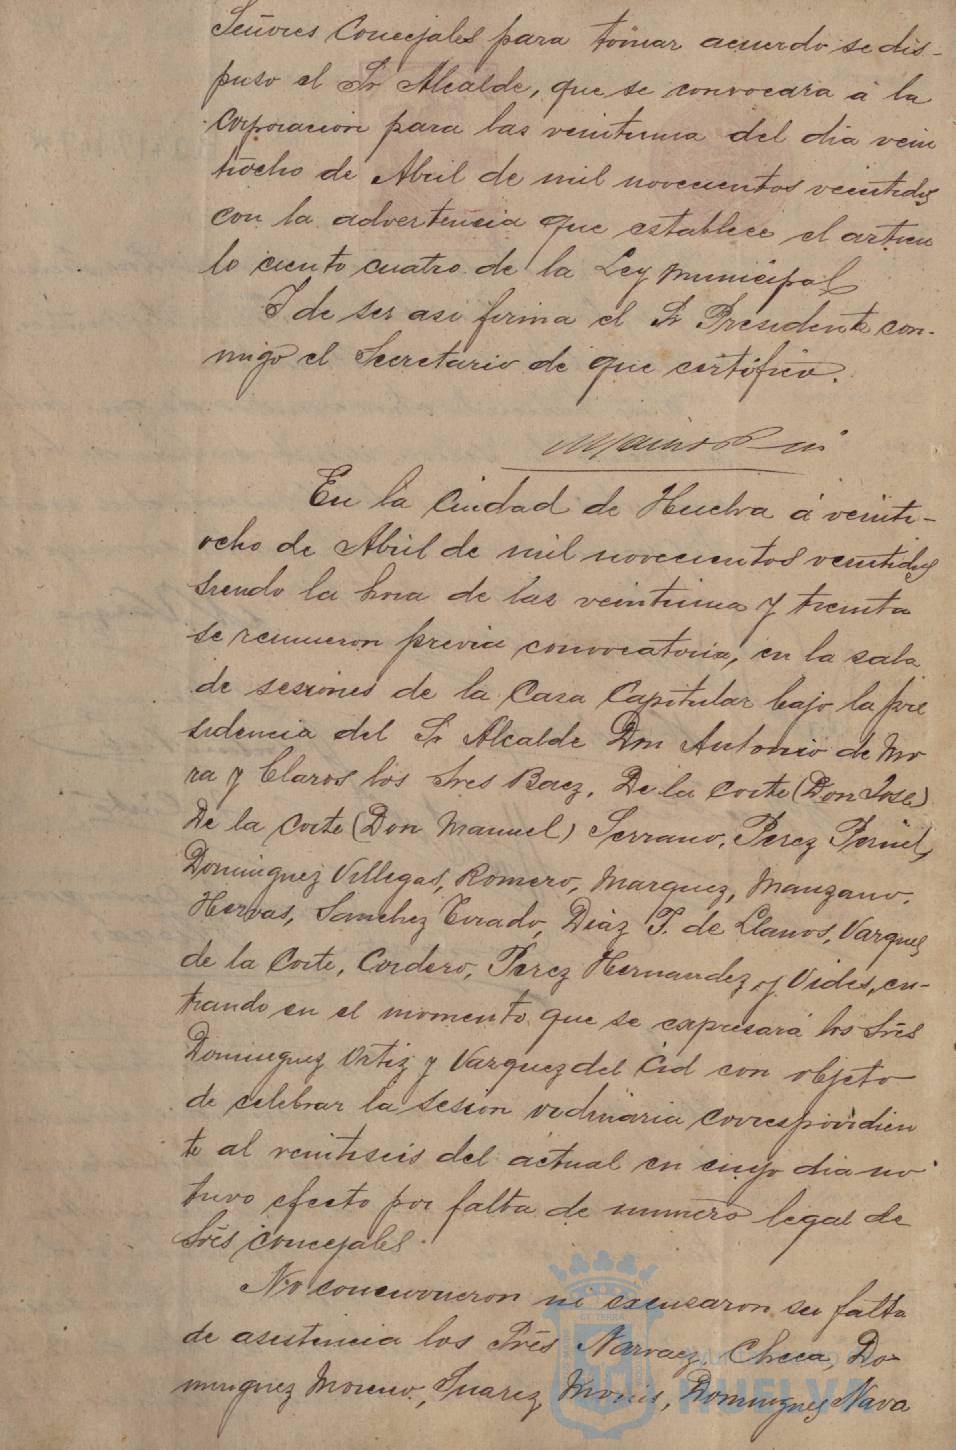 Señores Concejales para tomar acuerdo se dis-
puso el Sr Alcalde, que se convocara á la
Corporacion para las veintiuna del dia vein
tiocho de Abril de mil novecientos veintidos
con la advertencia que establece el articu
lo ciento cuatro de la Ley Municipal
Y de ser asi firma el Sr Presidente con-
migo el Secretario de que certifico.
En la Ciudad de Huelva á veinti-
ocho de Abril de mil novecientos veintidos
siendo la hora de las veintiuna y treinta
se reunieron previa convocatoria, en la sala
de sesiones de la Casa Capitular bajo la pre
sidencia del Sr Alcalde Don Antonio de Mo
ra y Claros los Sres Baez, De la Corte (Don Jose)
De la Corte (Don Manuel) Serrano, Perez Peniel,
Dominguez Villegas, Romero, Marquez, Manzano,
Hervas, Sanchez Tirado, Diaz F. de Llanos, Vazquez
de la Corte, Cordero, Perez Hernandez y Vides, en-
trando en el momento que se expresará los Sres
Dominguez Ortiz y Vazquez del Cid con objeto
de celebrar la sesion ordinaria correspondien
te al veintiseis del actual en cuyo dia no
tuvo efecto por falta de numero legal de
Sres concejales.
No concurrieron ni excusaron su falta
de asistencia los Sres Narvaez, Checa, Do-
minguez Moreno, Suarez, Monis, Dominguez Nava
HUELVA